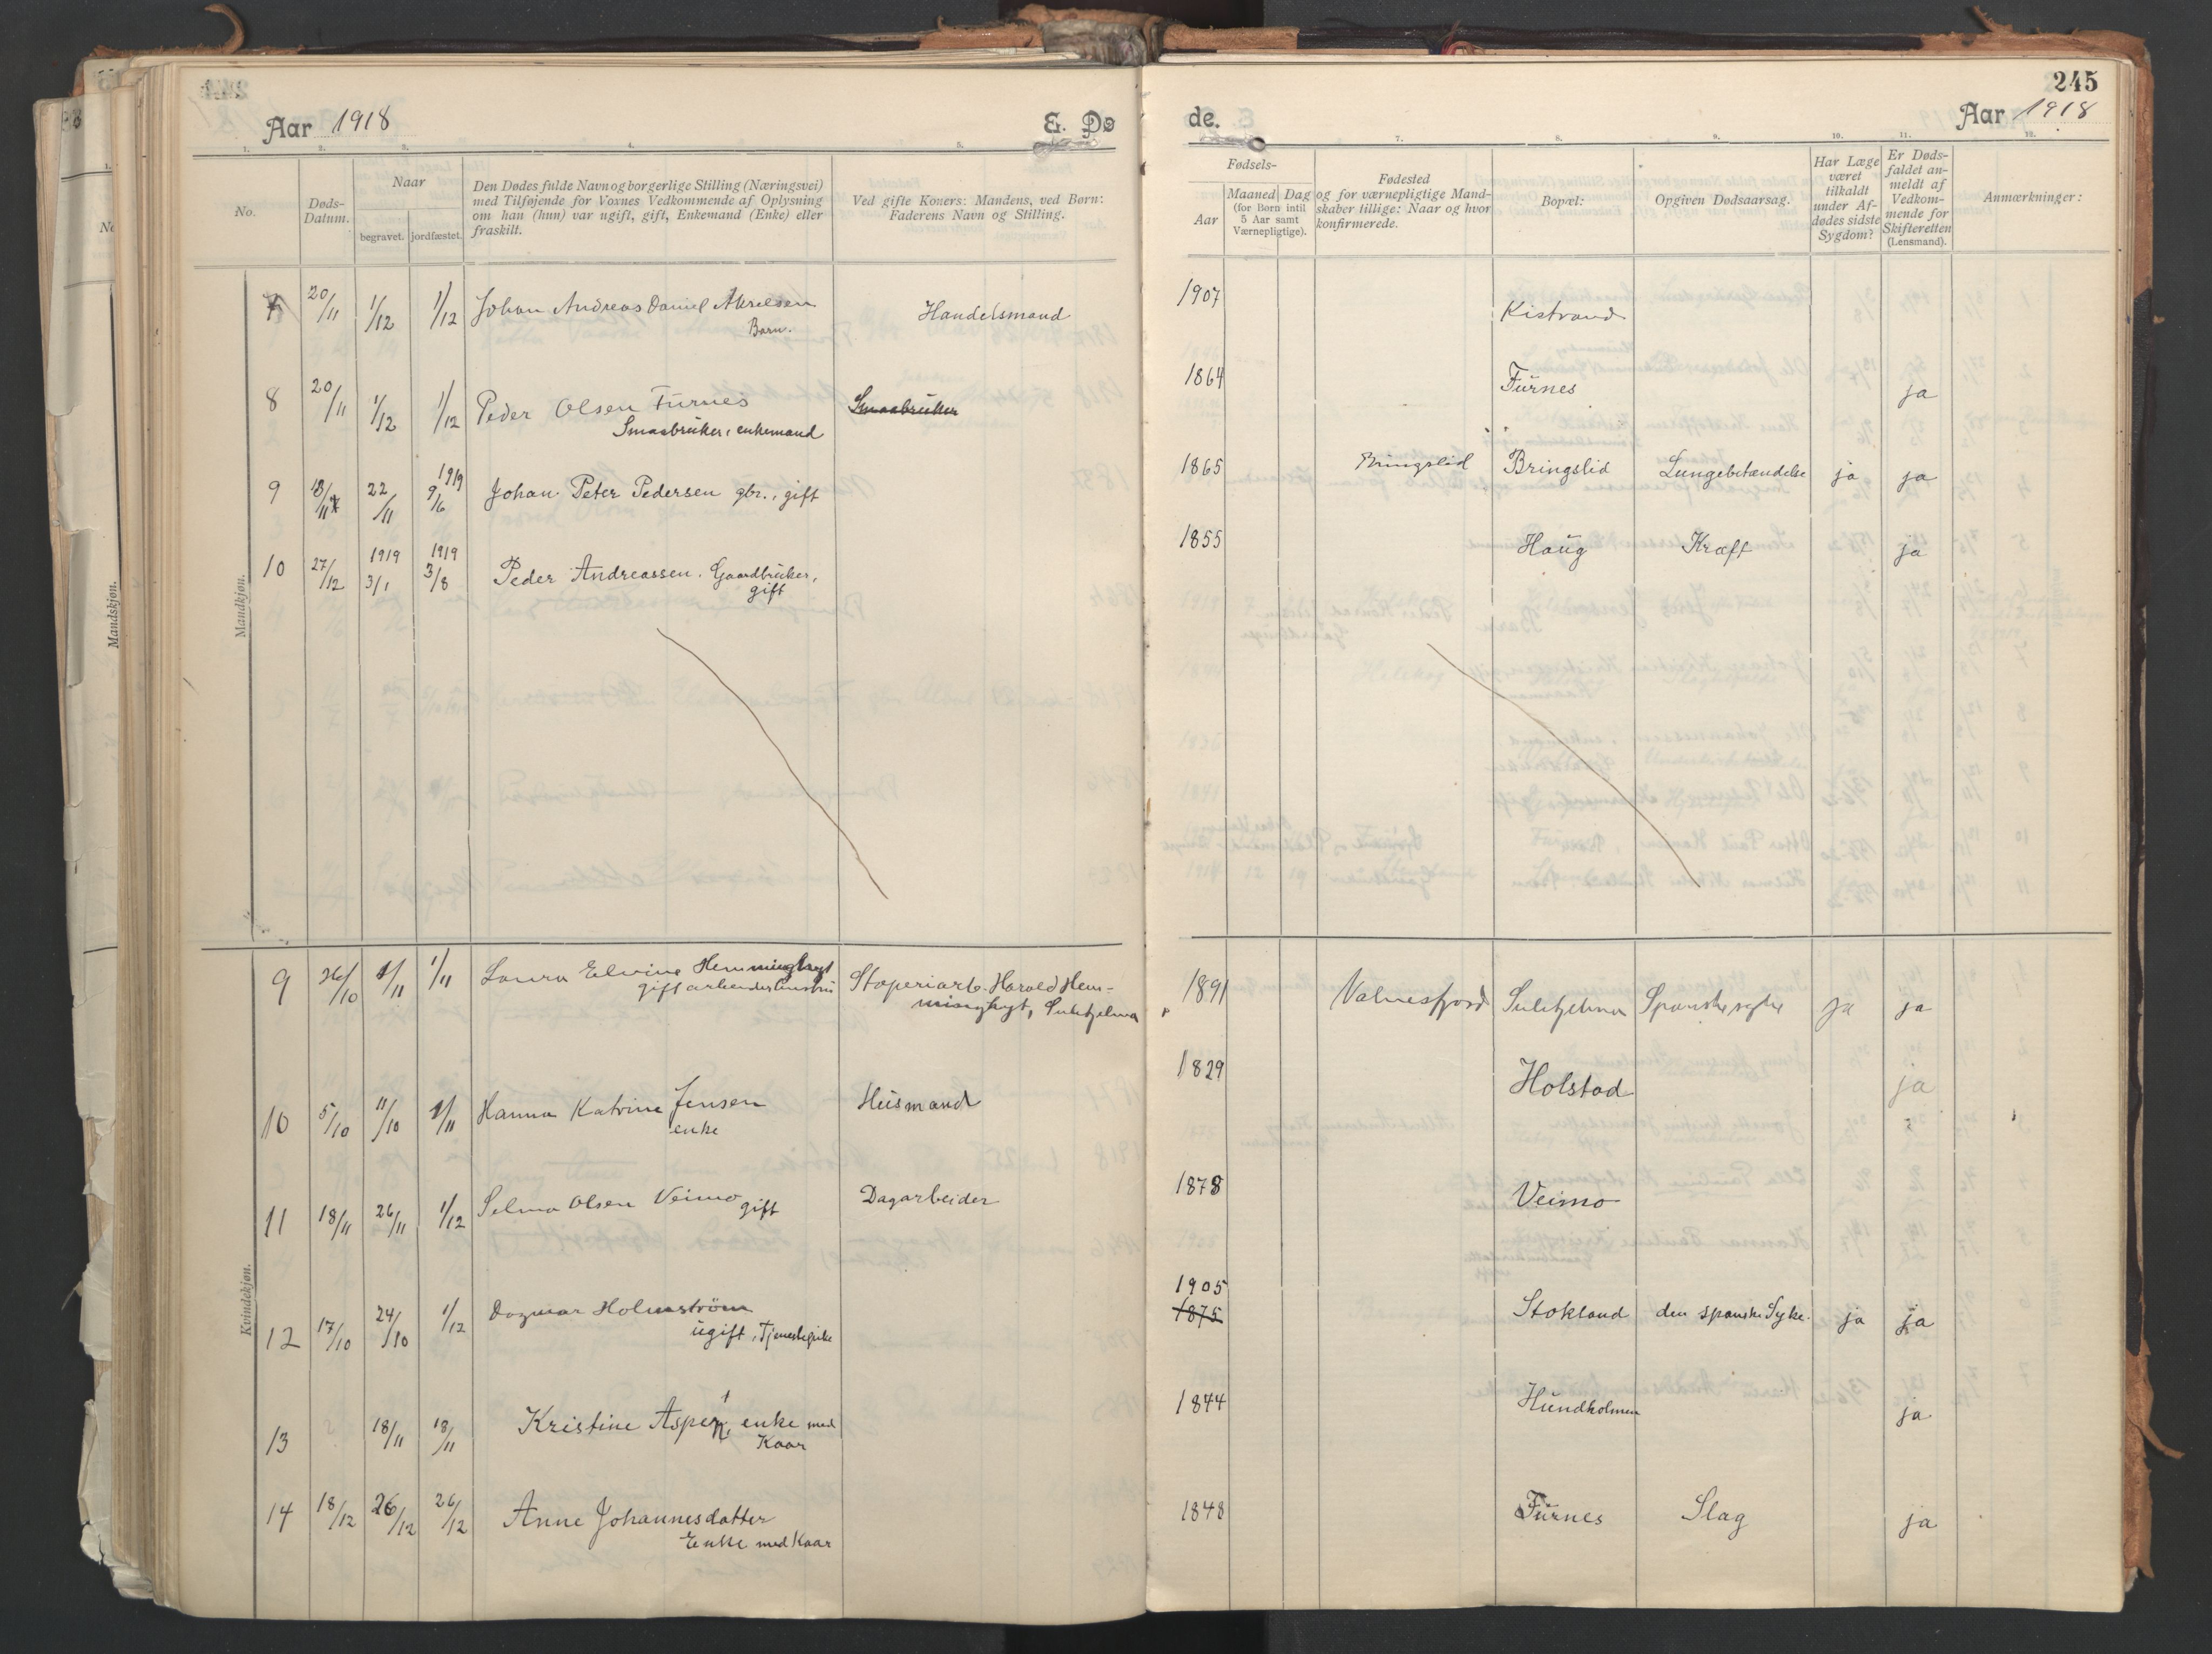 245
Aar 1918
E. Dø
de.
Aar 1918
1. 2. 3. 4. 5. 7. 8. 9. 10. 11. 12.
No.
Døds-
Datum.
Naar
begravet. jordfæstet.
Den Dødes fulde Navn og borgerlige Stilling (Næringsvei)
med Tilføjende for Voxnes Vedkommende af Oplysning
om han (hun) var ugift, gift, Enkemand (Enke) eller
fraskilt.
Ved gifte Koners: Mandens, ved Børn:
Faderens Navn og Stilling.
Fødsels-
Aar
Maaned Dag
(for Børn indtil
5 Aar samt
Værnepligtige).
Fødested
og for værnepligtige Mand-
skaber tillige: Naar og hvor
konfirmerede.
Bopæl:
Opgiven Dødsaarsag.
Har Læge
været
tilkaldt
under Af-
dødes sidste
Sygdom?
Er Døds-
faldet an-
meldt af
Vedkom-
mende for
Skifteretten
(Lensmand).
Anmærkninger:
Mandskjøn.
Mandkjøn.
7 20/11 1/12 1/12 Johan Andreas Daniel Akselsen Handelsmand 1907 Kistrand
Barn.
8 20/11 1/12 1/12 Peder Olsen Furnes Smaabruker 1864 Furnes ja
Smaabruker, enkemand
1919
9 18/11 22/11 9/6 Johan Peter Pedersen gbr., gift 1865 Bringslid Bringslid Lungebetændelse ja ja
1919 1919
10 27/12 3/1 3/8 Peder Andreassen. Gaardbruker, 1855 Haug Kræft ja
gift
Kvindekjøn.
9 26/10 1/11 1/11 Laura Elvine Hemminghyt Stoperiarb. Harald Hem- 1891 Valnesfjord Sulitjelma Spanske syke ja ja
gift arbeiderhustru minghyt, Sulitjelma
10 5/10 11/10 1/11 Hanna Katrine Jensen Husmand 1829 Holstad ja
enke
11 18/11 26/11 1/12 Selma Olsen Veimo gift Dagarbeider 1878 Veimo
1905
12 17/10 24/10 1/12 Dagmar Holmström 1875 Stokland den spanske Syke. ja ja
ugift, Tjenestepike
13 18/11 18/11 Kristine Asper, enke med 1844 Hundholmen ja
Kaar
14 18/12 26/12 26/12 Anne Johannesdatter 1848 Furnes Slag ja
Enke med Kaar